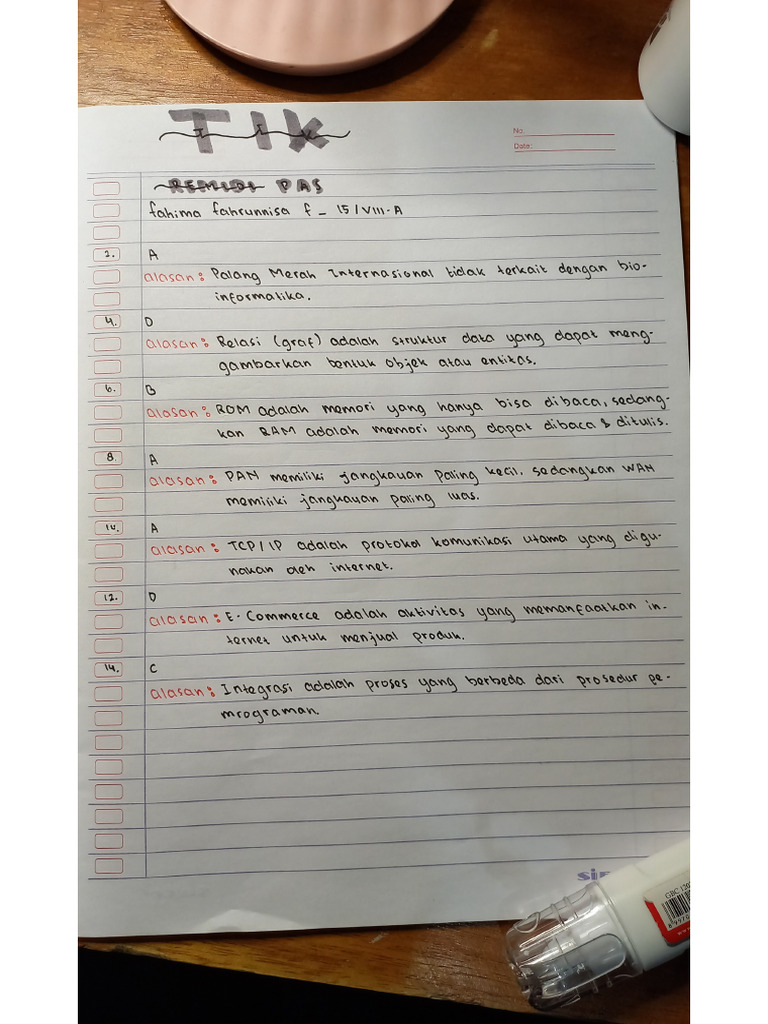 TIK
TIK
No
Date:
REMIDI PAS
fahima fahrunnisa f _ 15/VIII-A
2. A
alasan: Palang Merah Internasional tidak terkait dengan bio-
informatika.
4. D
alasan: Relasi (graf) adalah struktur data yang dapat meng-
gambarkan bentuk objek atau entitas.
6. B
alasan: ROM adalah memori yang hanya bisa dibaca, sedang-
kan RAM adalah memori yang dapat dibaca & ditulis.
8. A
alasan: PAN memiliki jangkauan paling kecil, sedangkan WAN
memiliki jangkauan paling luas.
10. A
alasan: TCP/IP adalah protokol komunikasi utama yang digu-
nakan oleh internet.
12. D
alasan: E-Commerce adalah aktivitas yang memanfaatkan in-
ternet untuk menjual produk.
14. C
alasan: Integrasi adalah proses yang berbeda dari prosedur pe-
mrograman.